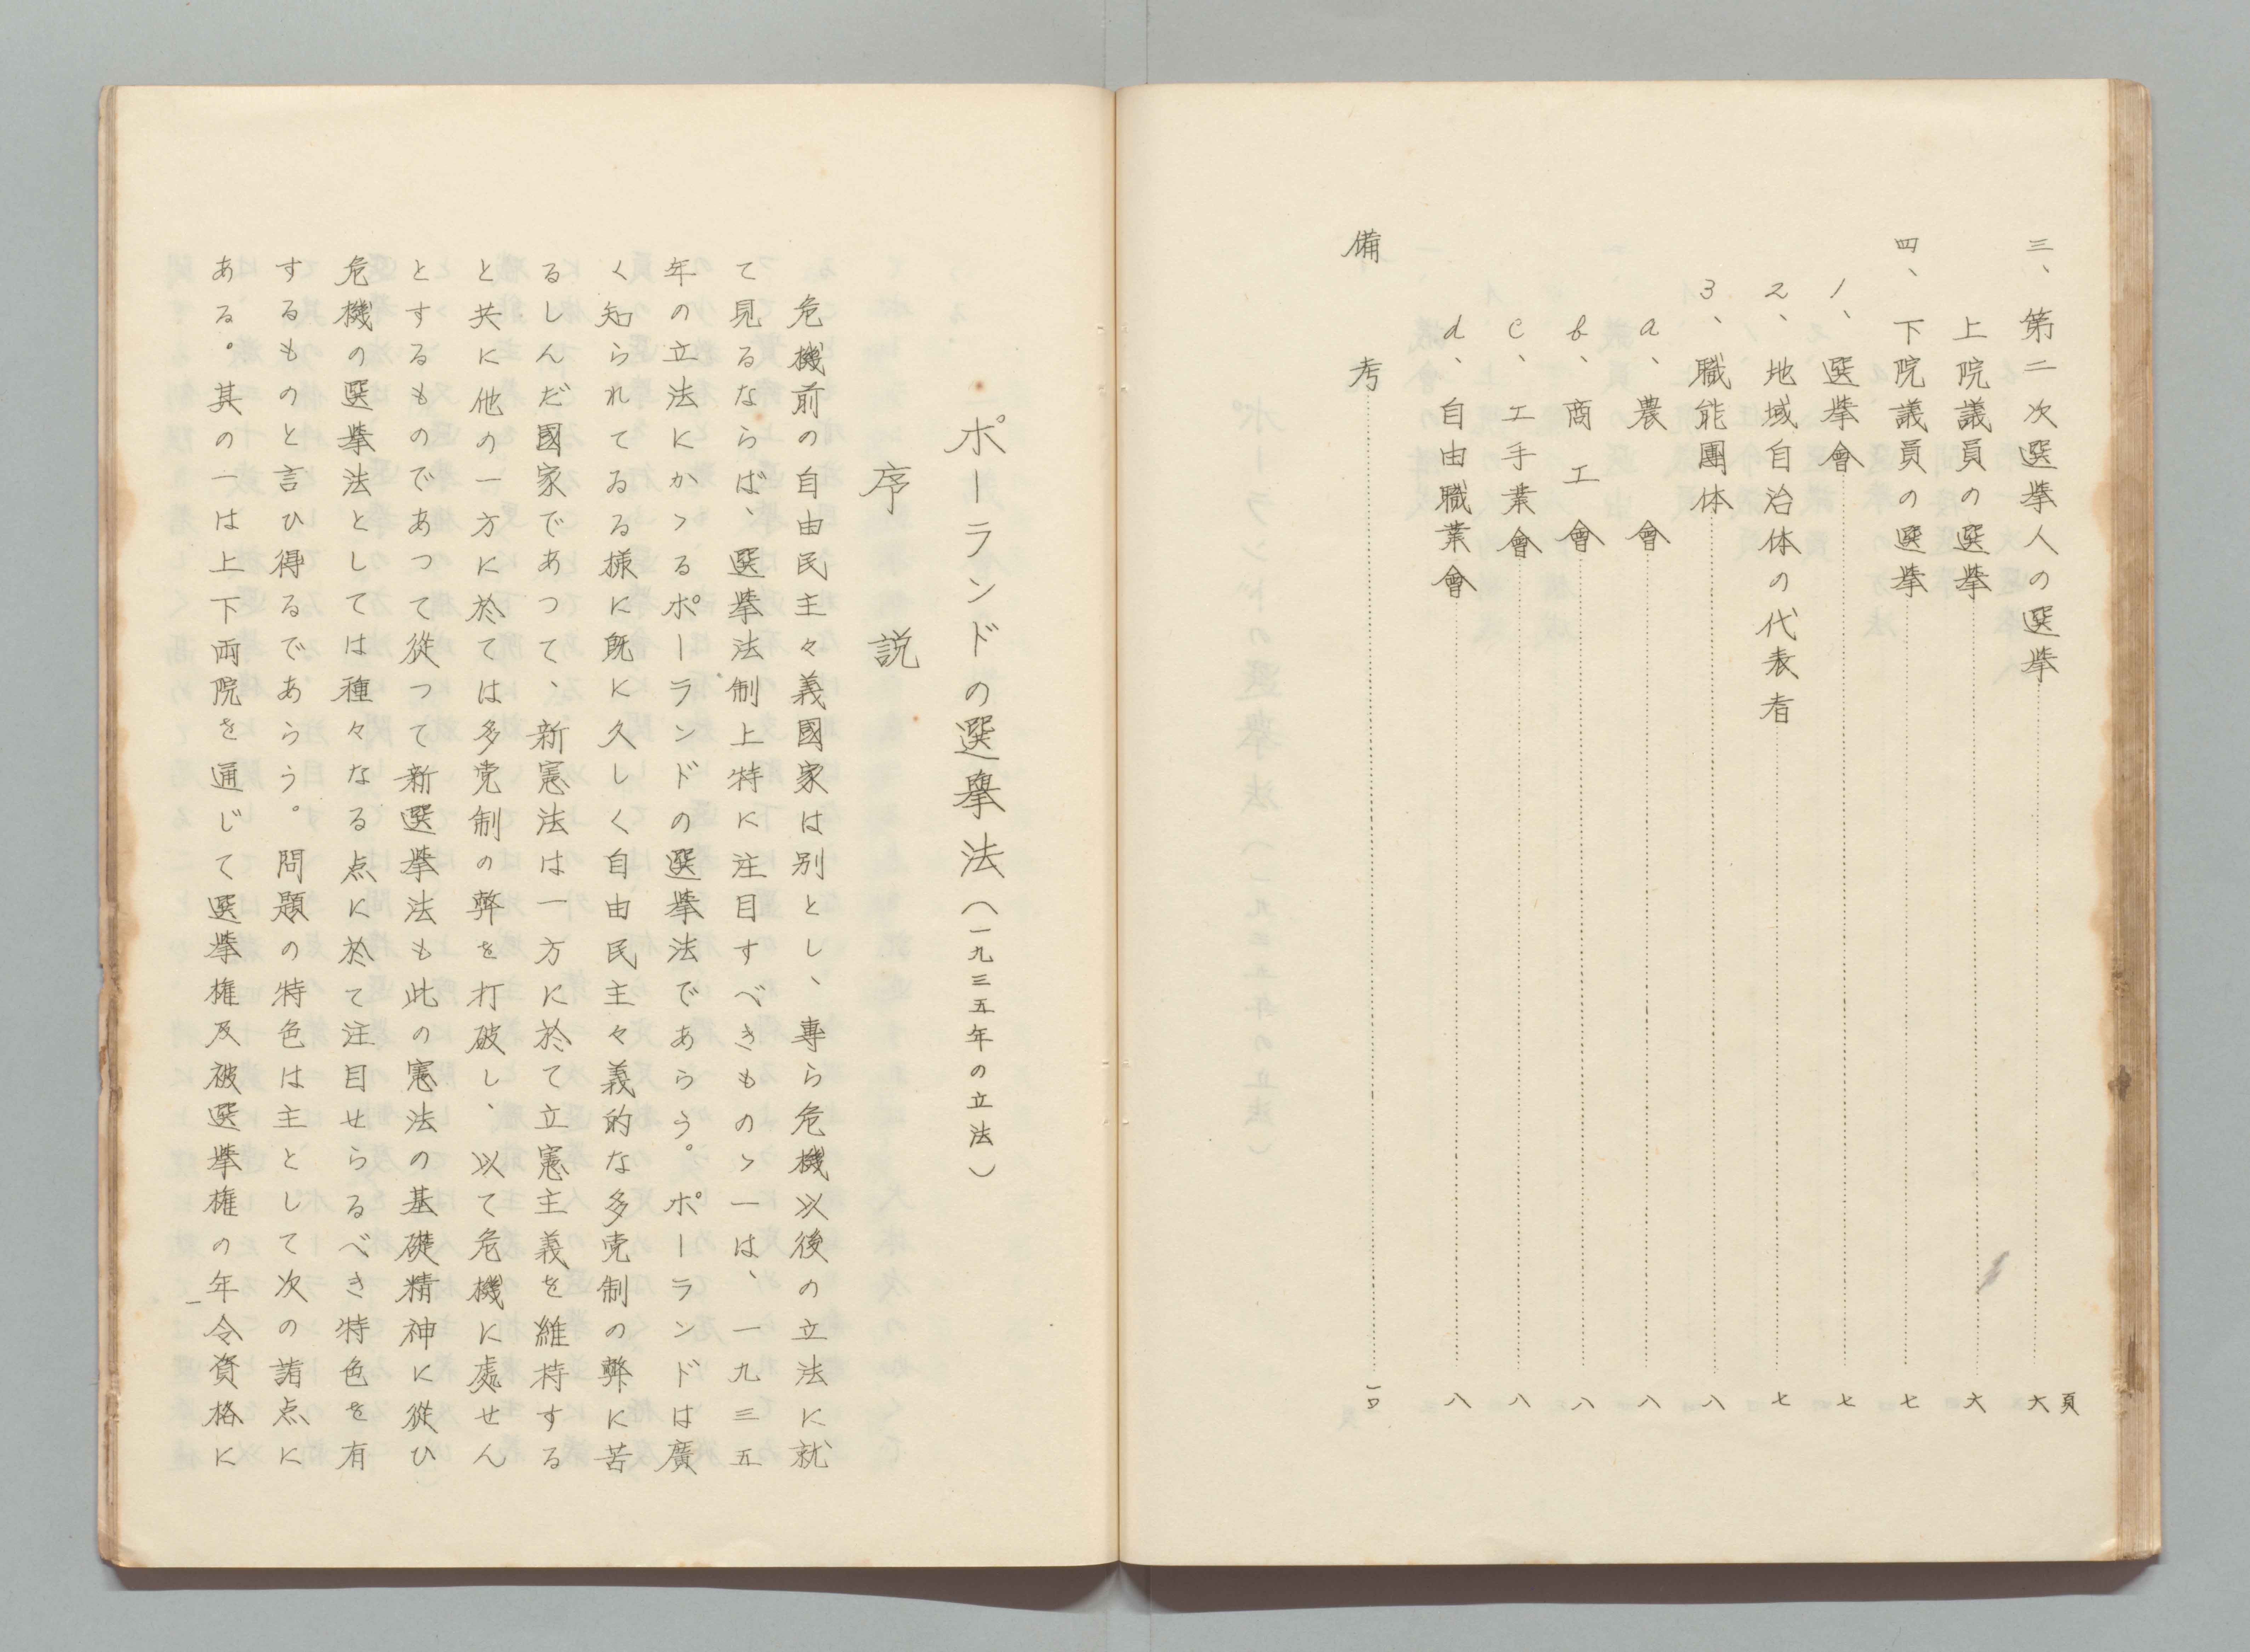 頁
三、第二次選挙人の選挙……六
上院議員の選挙……六
四、下院議員の選挙……七
1、選挙會……七
2、地域自治体の代表者……七
3、職能團体……八
a、農會……八
b、商工會……八
c、工手業會……八
d、自由職業會……八
備考……一〇
ポーランドの選擧法（一九三五年の立法）
序説
危機前の自由民主々義國家は別とし、専ら危機以後の立法に就
て見るならば、選挙法制上特に注目すべきものゝ一は、一九三五
年の立法にかゝるポーランドの選挙法であらう。ポーランドは廣
く知られてゐる様に既に久しく自由民主々義的な多党制の弊に苦
るしんだ國家であつて、新憲法は一方に於て立憲主義を維持する
と共に他の一方に於ては多党制の弊を打破し、以て危機に處せん
とするものであつて從つて新選挙法も此の憲法の基礎精神に從ひ
危機の選挙法としては種々なる点に於て注目せらるべき特色を有
するものと言ひ得るであらう。問題の特色は主として次の諸点に
ある。其の一は上下両院を通じて選挙権及被選挙権の年令資格に
一